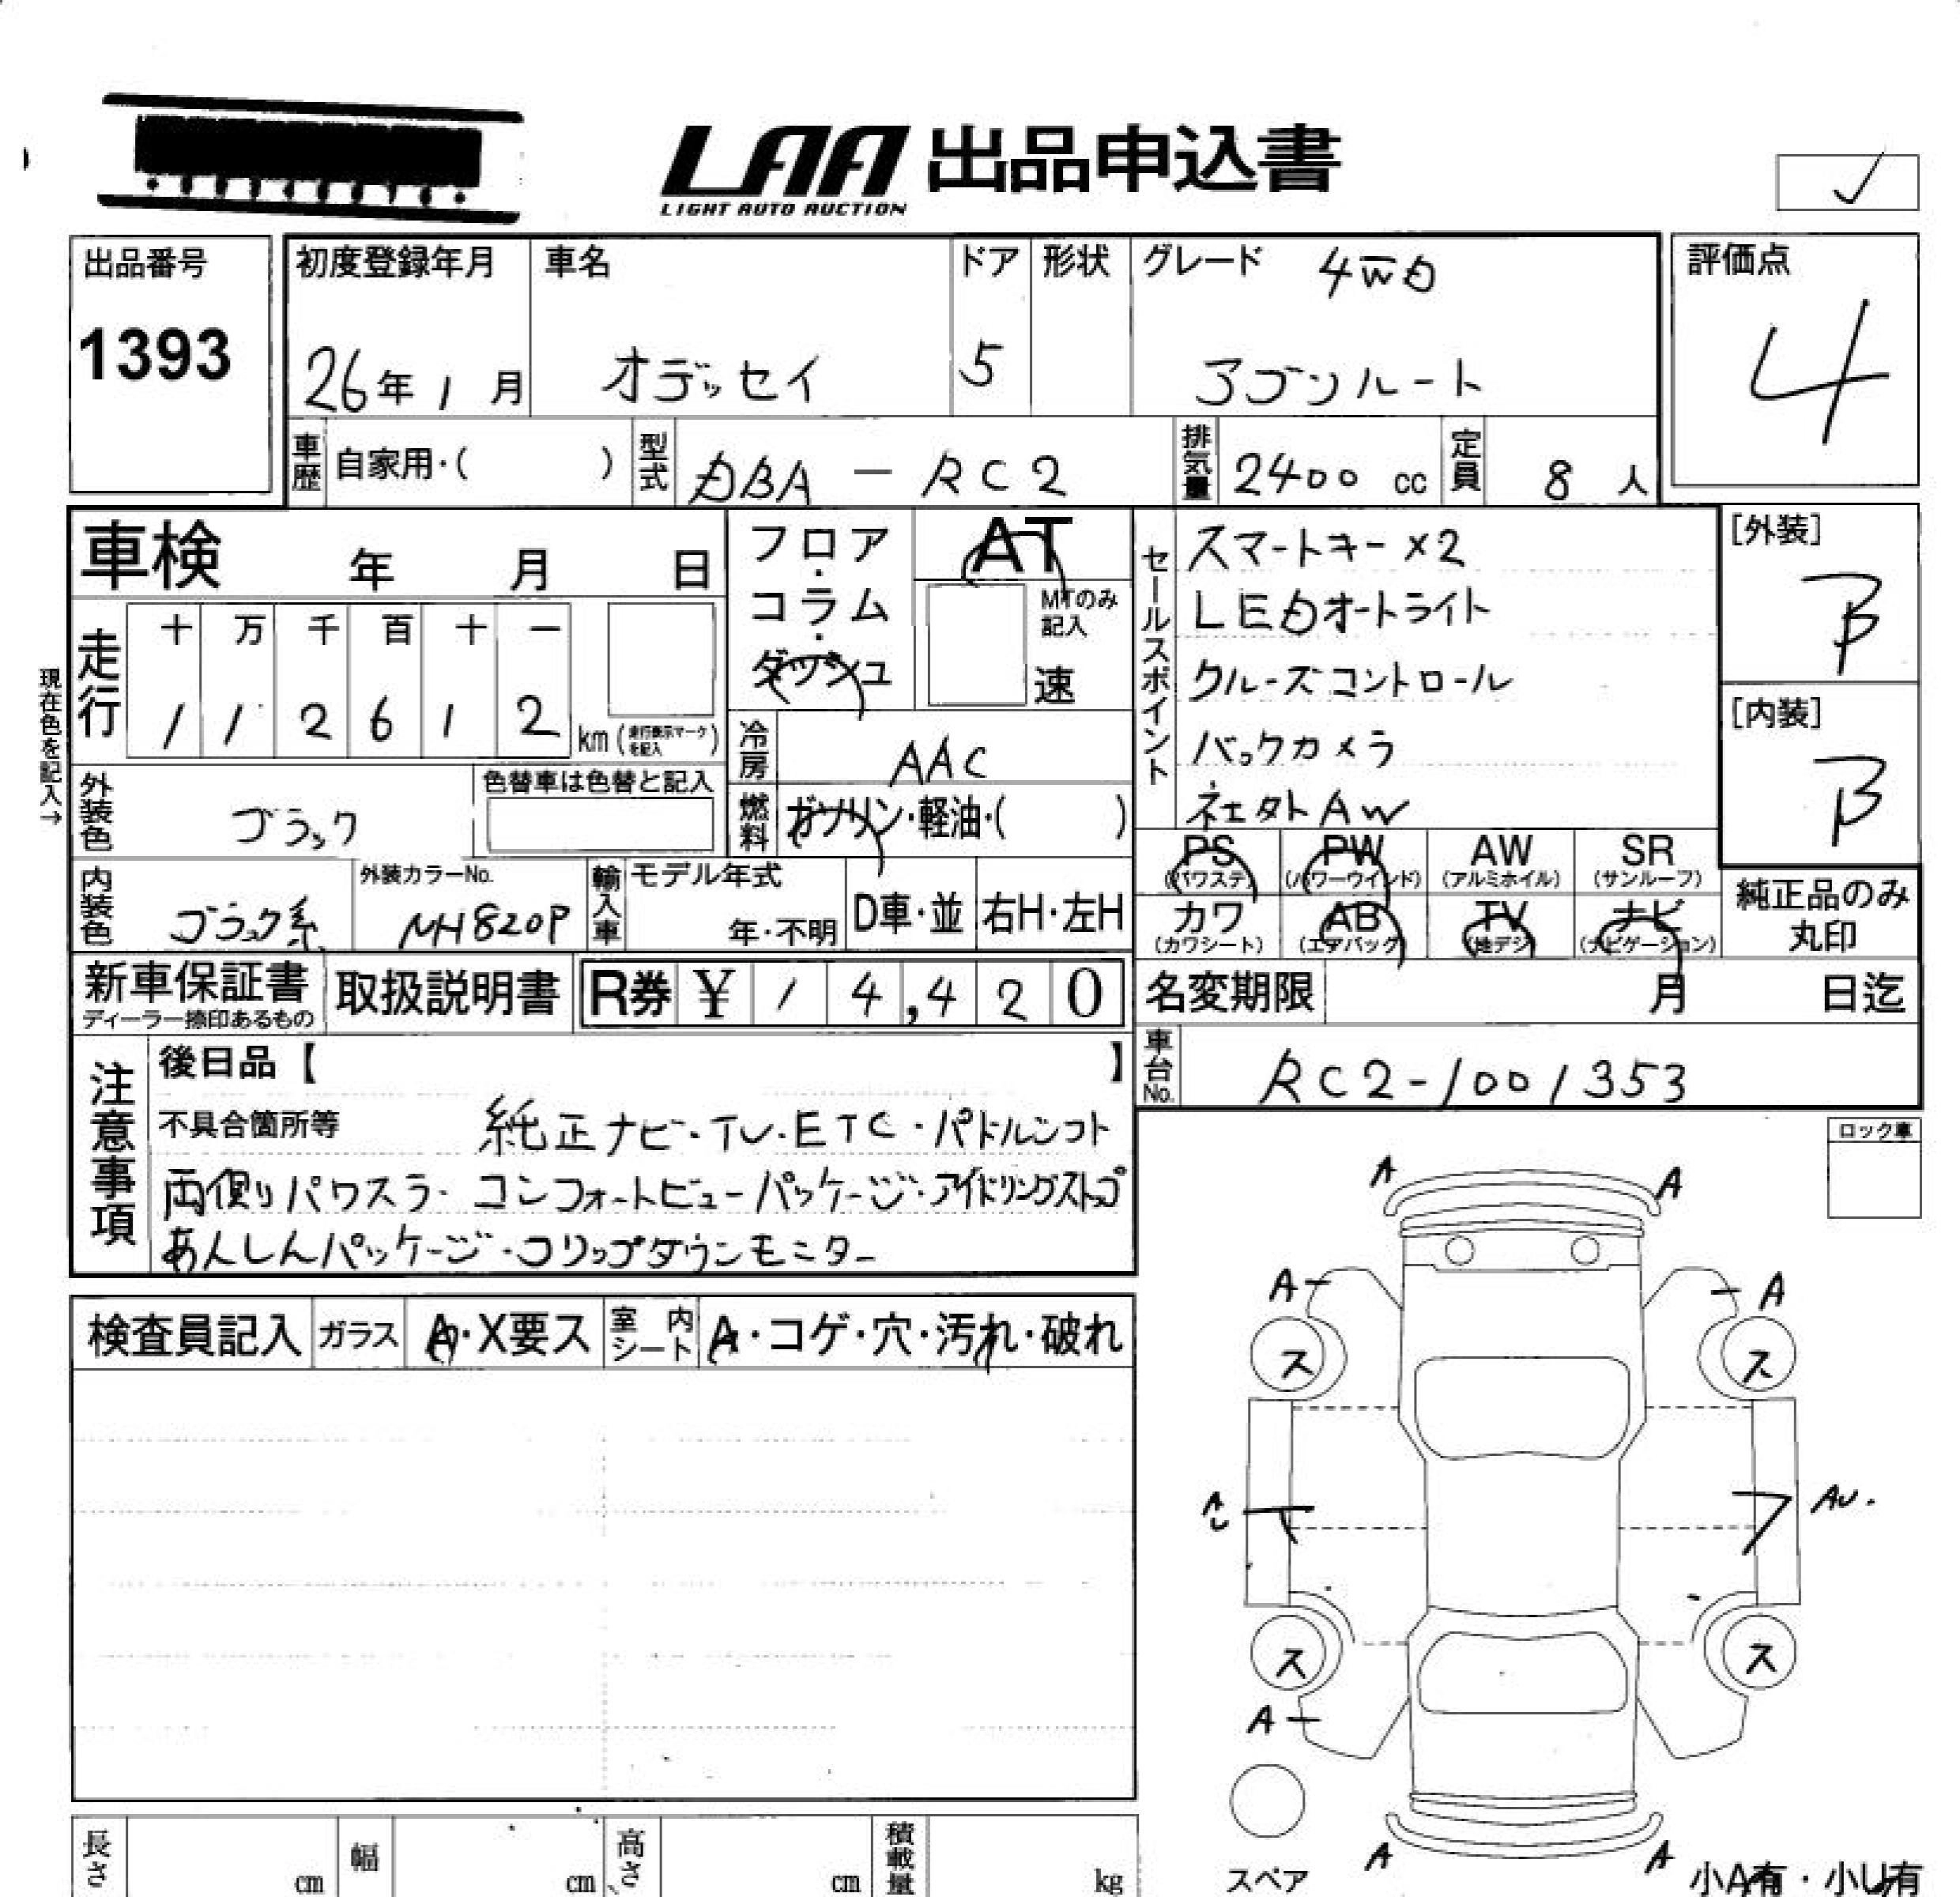 LAA 出品申込書
LIGHT AUTO AUCTION
✓
出品番号
1393
初度登録年月
26年 1 月
車名
オデッセイ
ドア
5
形状
グレード 4WD
アブソルート
評価点
4
車歴 自家用・( )
型式 DBA - RC2
排気量 2400 cc
定員 8 人
車検 年 月 日
フロア・コラム・ダッシュ
AT
MTのみ記入
速
走行
十 万 千 百 十 一
1 1 2 6 1 2 km (走行表示マークを記入)
現在色を記入→
外装色 ブラック
色替車は色替と記入
冷房 AAC
燃料 ガソリン・軽油・( )
内装色 ブラック系
外装カラーNo.
NH820P
輸入車 モデル年式
年・不明
D車・並
右H・左H
セールスポイント
スマートキー×2
LEDオートライト
クルーズコントロール
バックカメラ
社外AW
[外装]
B
[内装]
B
PS (パワステ)
PW (パワーウインド)
AW (アルミホイル)
SR (サンルーフ)
カワ (カワシート)
AB (エアバッグ)
TV (地デジ)
ナビ (ナビゲーション)
純正品のみ丸印
新車保証書
ディーラー捺印あるもの
取扱説明書
R券 ¥ 14,420
名変期限 月 日迄
車台No. RC2-1001353
注意事項
後日品【 】
不具合箇所等 純正ナビ・TV・ETC・パドルシフト
両側りパワスラ・コンフォートビューパッケージ・アイドリングストップ
あんしんパッケージ・フリップダウンモニター
ロック車
検査員記入
ガラス A・X要ス
室内シート A・コゲ・穴・汚れ・破れ
A
A
A
A
ス
ス
AU
ス
ス
A
A
A
スペア
小A有・小U有
長さ cm
幅 cm
高さ cm
積載量 kg